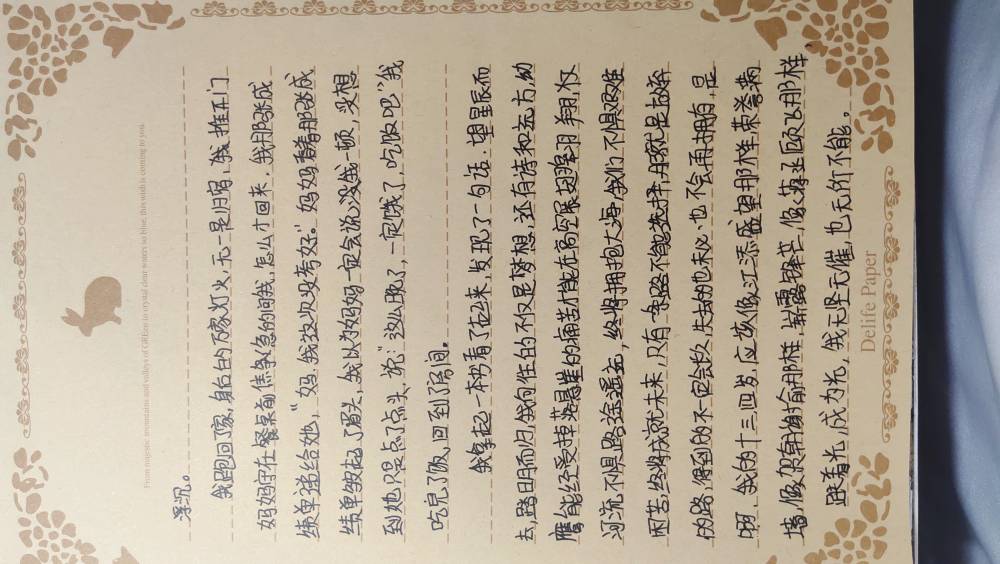 From majestic mountains and valleys of GREen to crystal clear waters so blue, this wish is coming to you.
深沉。
我跑回了家,身后的万家灯火,无一是归宿,我推开门
妈妈守在餐桌前焦急的问我,怎么才回来,我用那张成
绩单递给她,“妈,我这次没考好。”妈妈看着那张成
绩单皱起了眉头,我以为妈妈一定会说没我一顿,没想
到她只是点了点头,说:“这么晚了,一定饿了,吃饭吧”我
吃完了饭,回到了房间。
我拿起一本书看了起来,发现了一句话,望星辰而
去,踏日月而归,我向往的不仅是梦想,还有诗和远方,幼
鹰能经受摔落悬崖的痛苦才能在高空展翅翱翔,汉
河流不惧路途遥远,终将拥抱大海,我们不惧艰难
困苦,终将成就未来,只有条路不能选择,用就是放弃
的路,得到的不一定会长久,失去的也未必也不会再拥有,是
啊,我的十三四岁,应该像江添盛望那样荣誉满
墙,像段朝谢俞那样,崭露锋芒,像蒋丞顾飞那样
跟着光,成为光,我无坚无催,也无所不能。
Delife Paper